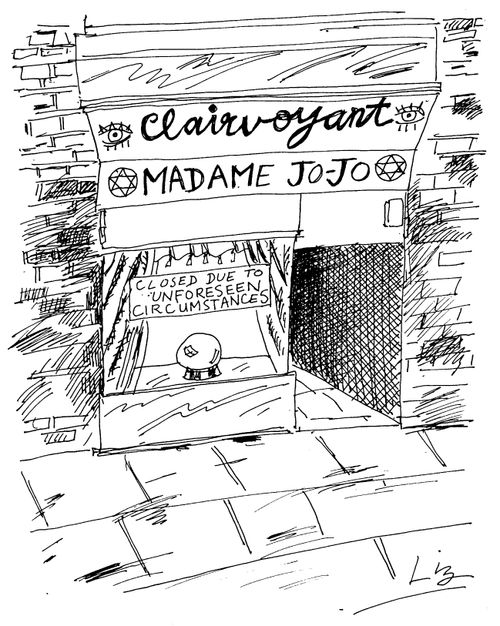 Clairvoyant
MADAME JO-JO
CLOSED DUE TO
UNFORESEEN
CIRCUMSTANCES
Liz